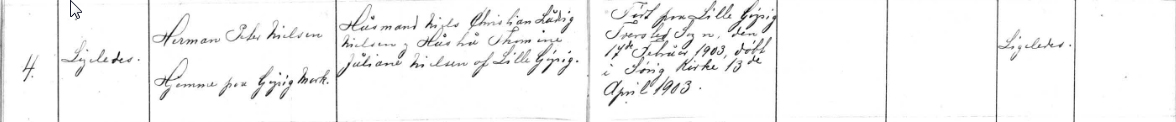 4.
Ligeledes.
Herman Peter Nielsen
Hjemme paa Gjøig Mark.
Husmand Niels Christian Ludvig
Nielsen og Hustru Thomine
Juliane Nielsen af Lille Gjøig.
Født paa Lille Gjøig
Sogn, den
17de Februar 1903, døbt
i Kirke 13de
April 1903.
Ligeledes.